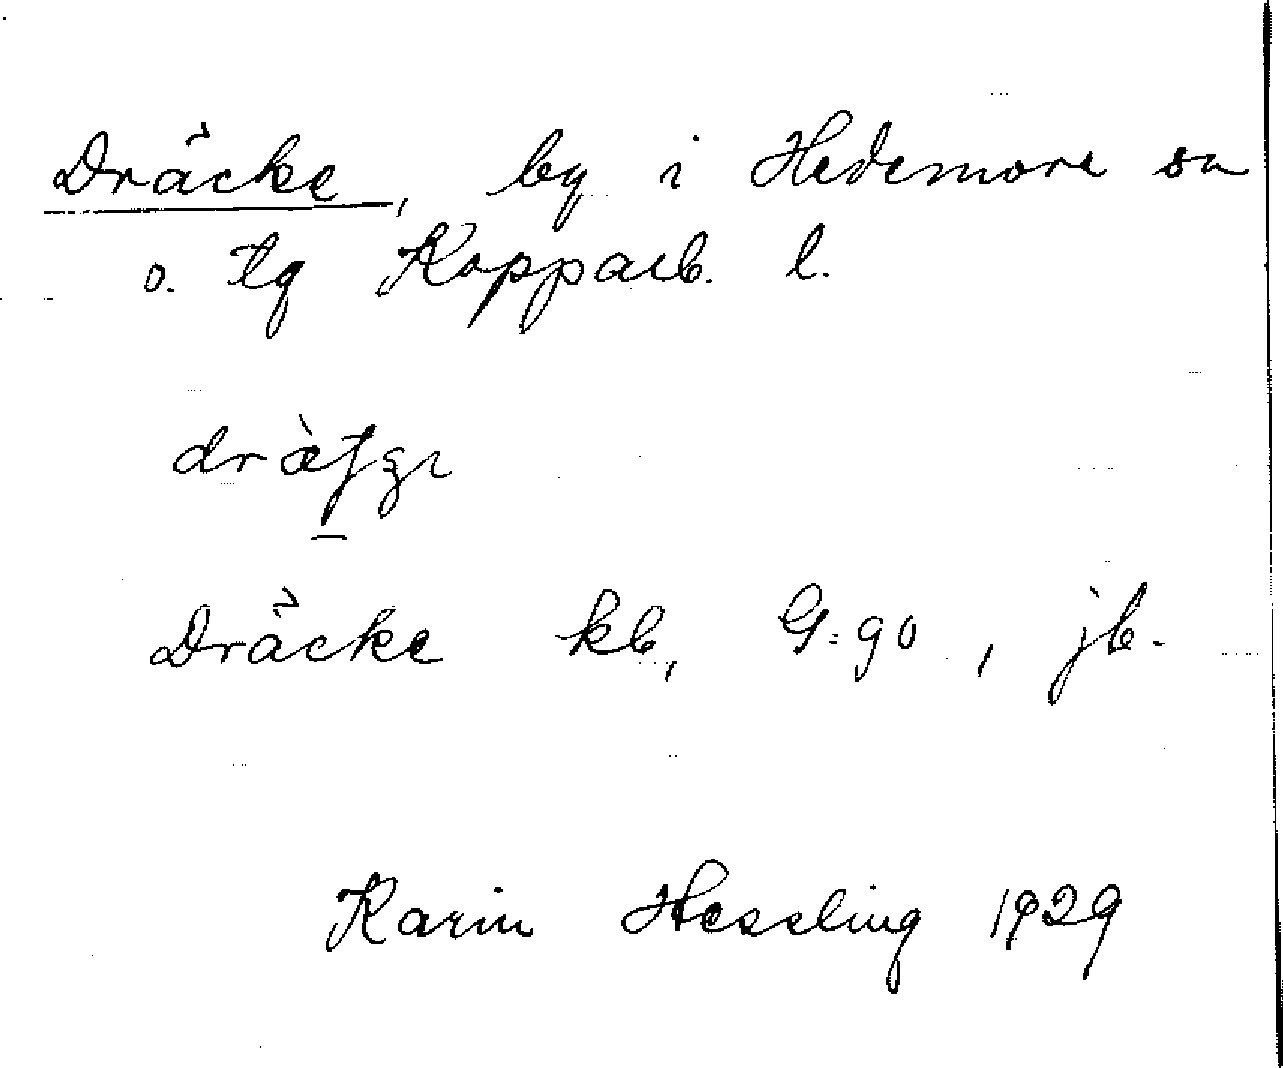 Dräcke, by i Hedemora sn
o. tg Kopparb. l.
Dräcke kb, G:go, jb.
Karin Hessling 1929